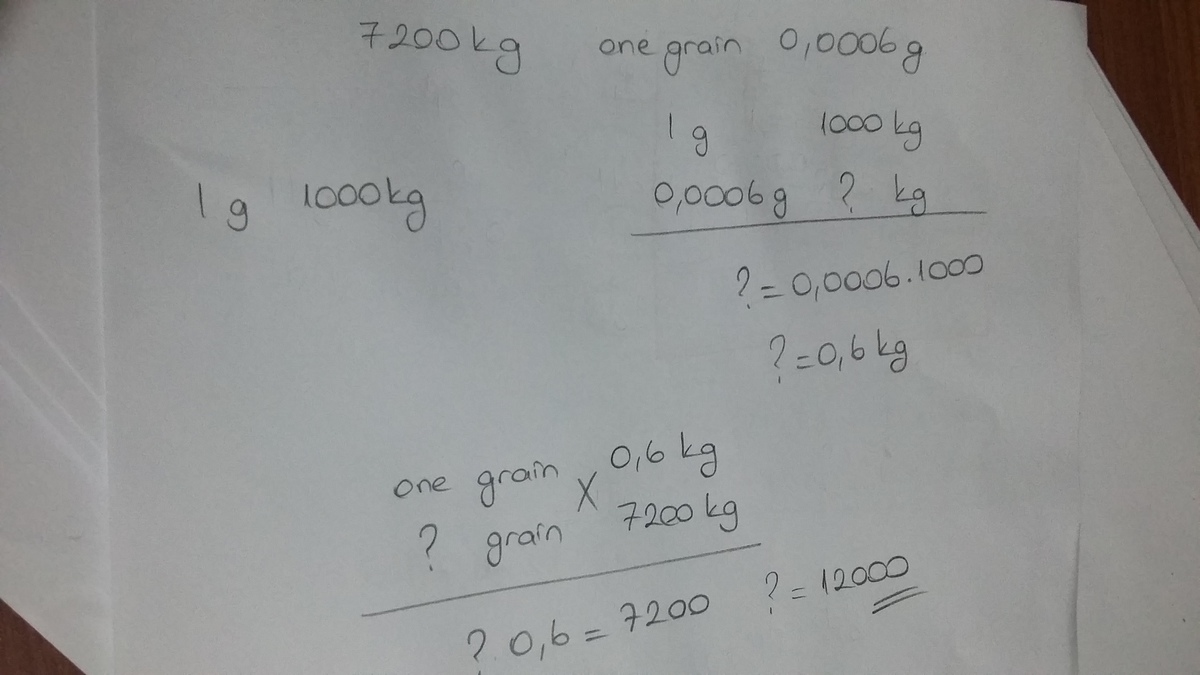 7200kg one grain 0,0006g
1g 1000kg
0,0006g ? kg
1g 1000kg
? = 0,0006.1000
? = 0,6 kg
one grain X 0,6 kg
? grain 7200 kg
?. 0,6 = 7200 ? = 12000